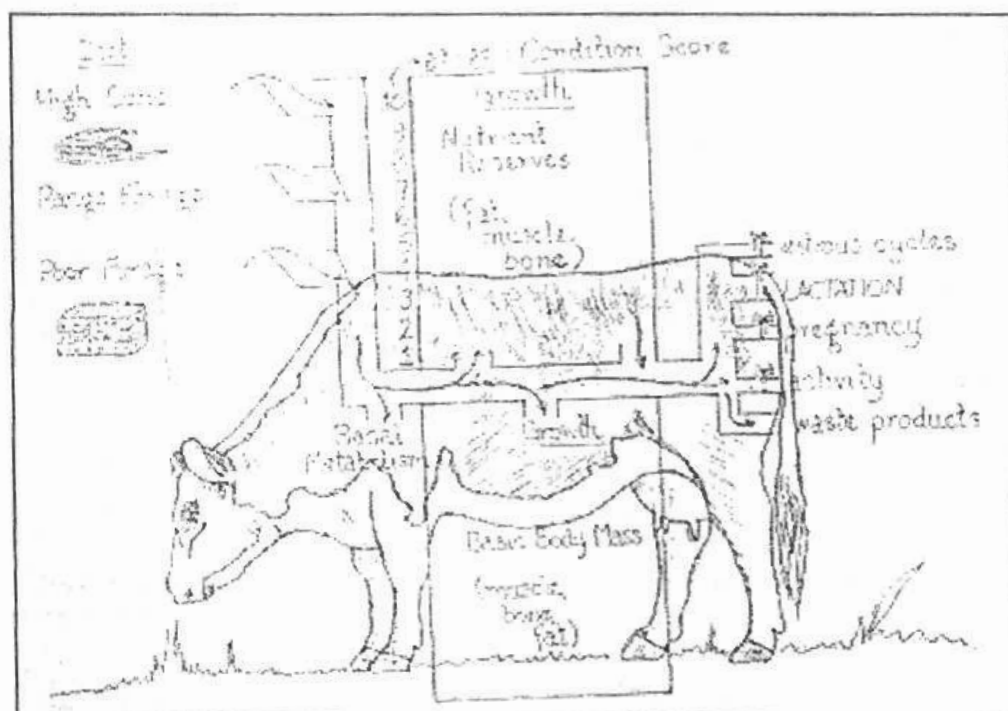 Diet
High
Range Forage
Poor Forage
Condition Score
Growth
Nutrient
Reserves
(fat,
muscle,
bone)
9
8
7
6
5
4
3
2
1
Estrous cycles
LACTATION
Pregnancy
Activity
waste products
Basal
Metabolism
Growth
Basic Body Mass
(muscle,
bone,
fat)